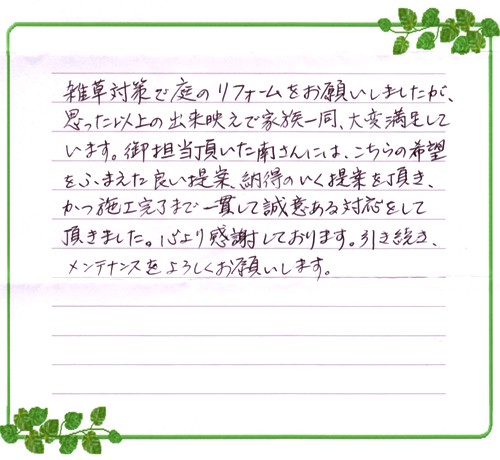 雑草対策で庭のリフォームをお願いしましたが、
思った以上の出来映えで家族一同、大変満足して
います。御担当頂いた南さんには、こちらの希望
をふまえた良い提案、納得のいく提案を頂き、
かつ施工完了まで一貫して誠意ある対応をして
頂きました。心より感謝しております。引き続き、
メンテナンスをよろしくお願いします。